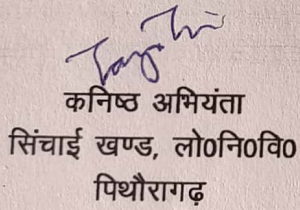 कनिष्ठ अभियंता
सिंचाई खण्ड, लो0नि0वि0
पिथौरागढ़